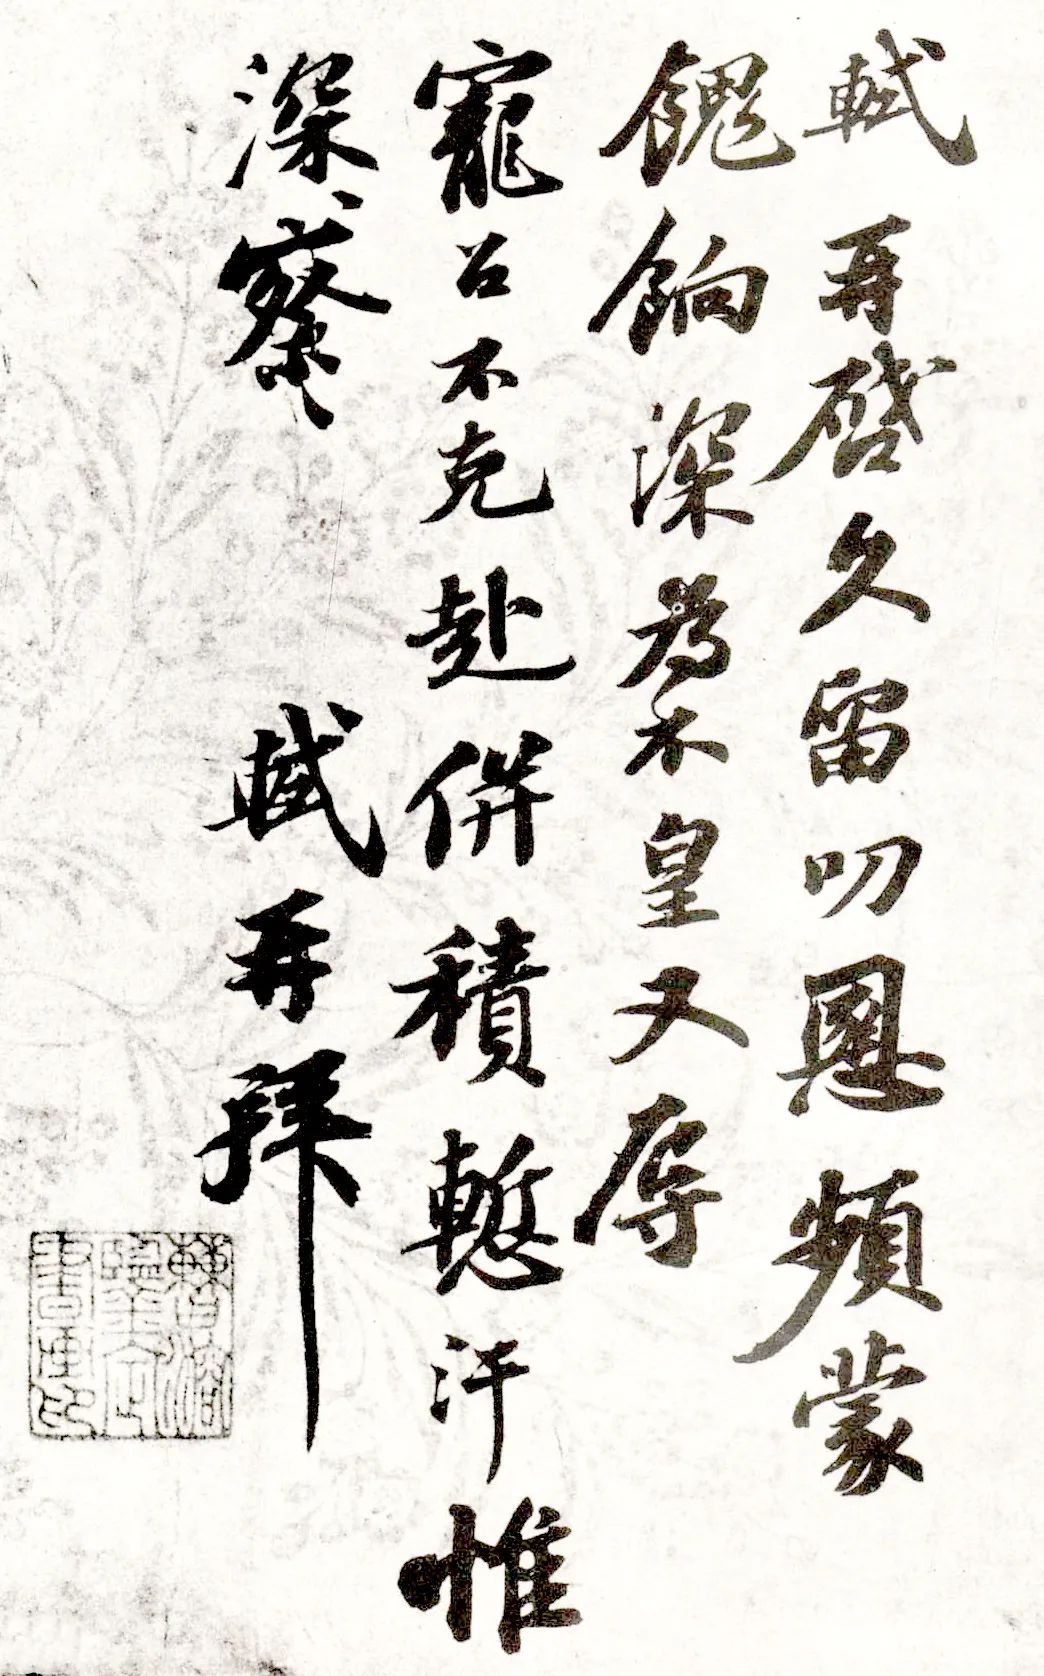 軾再啓久留叨恩頻蒙
餽餉深為不皇又辱
寵召不克赴併積慙汗惟
深察
軾再拜